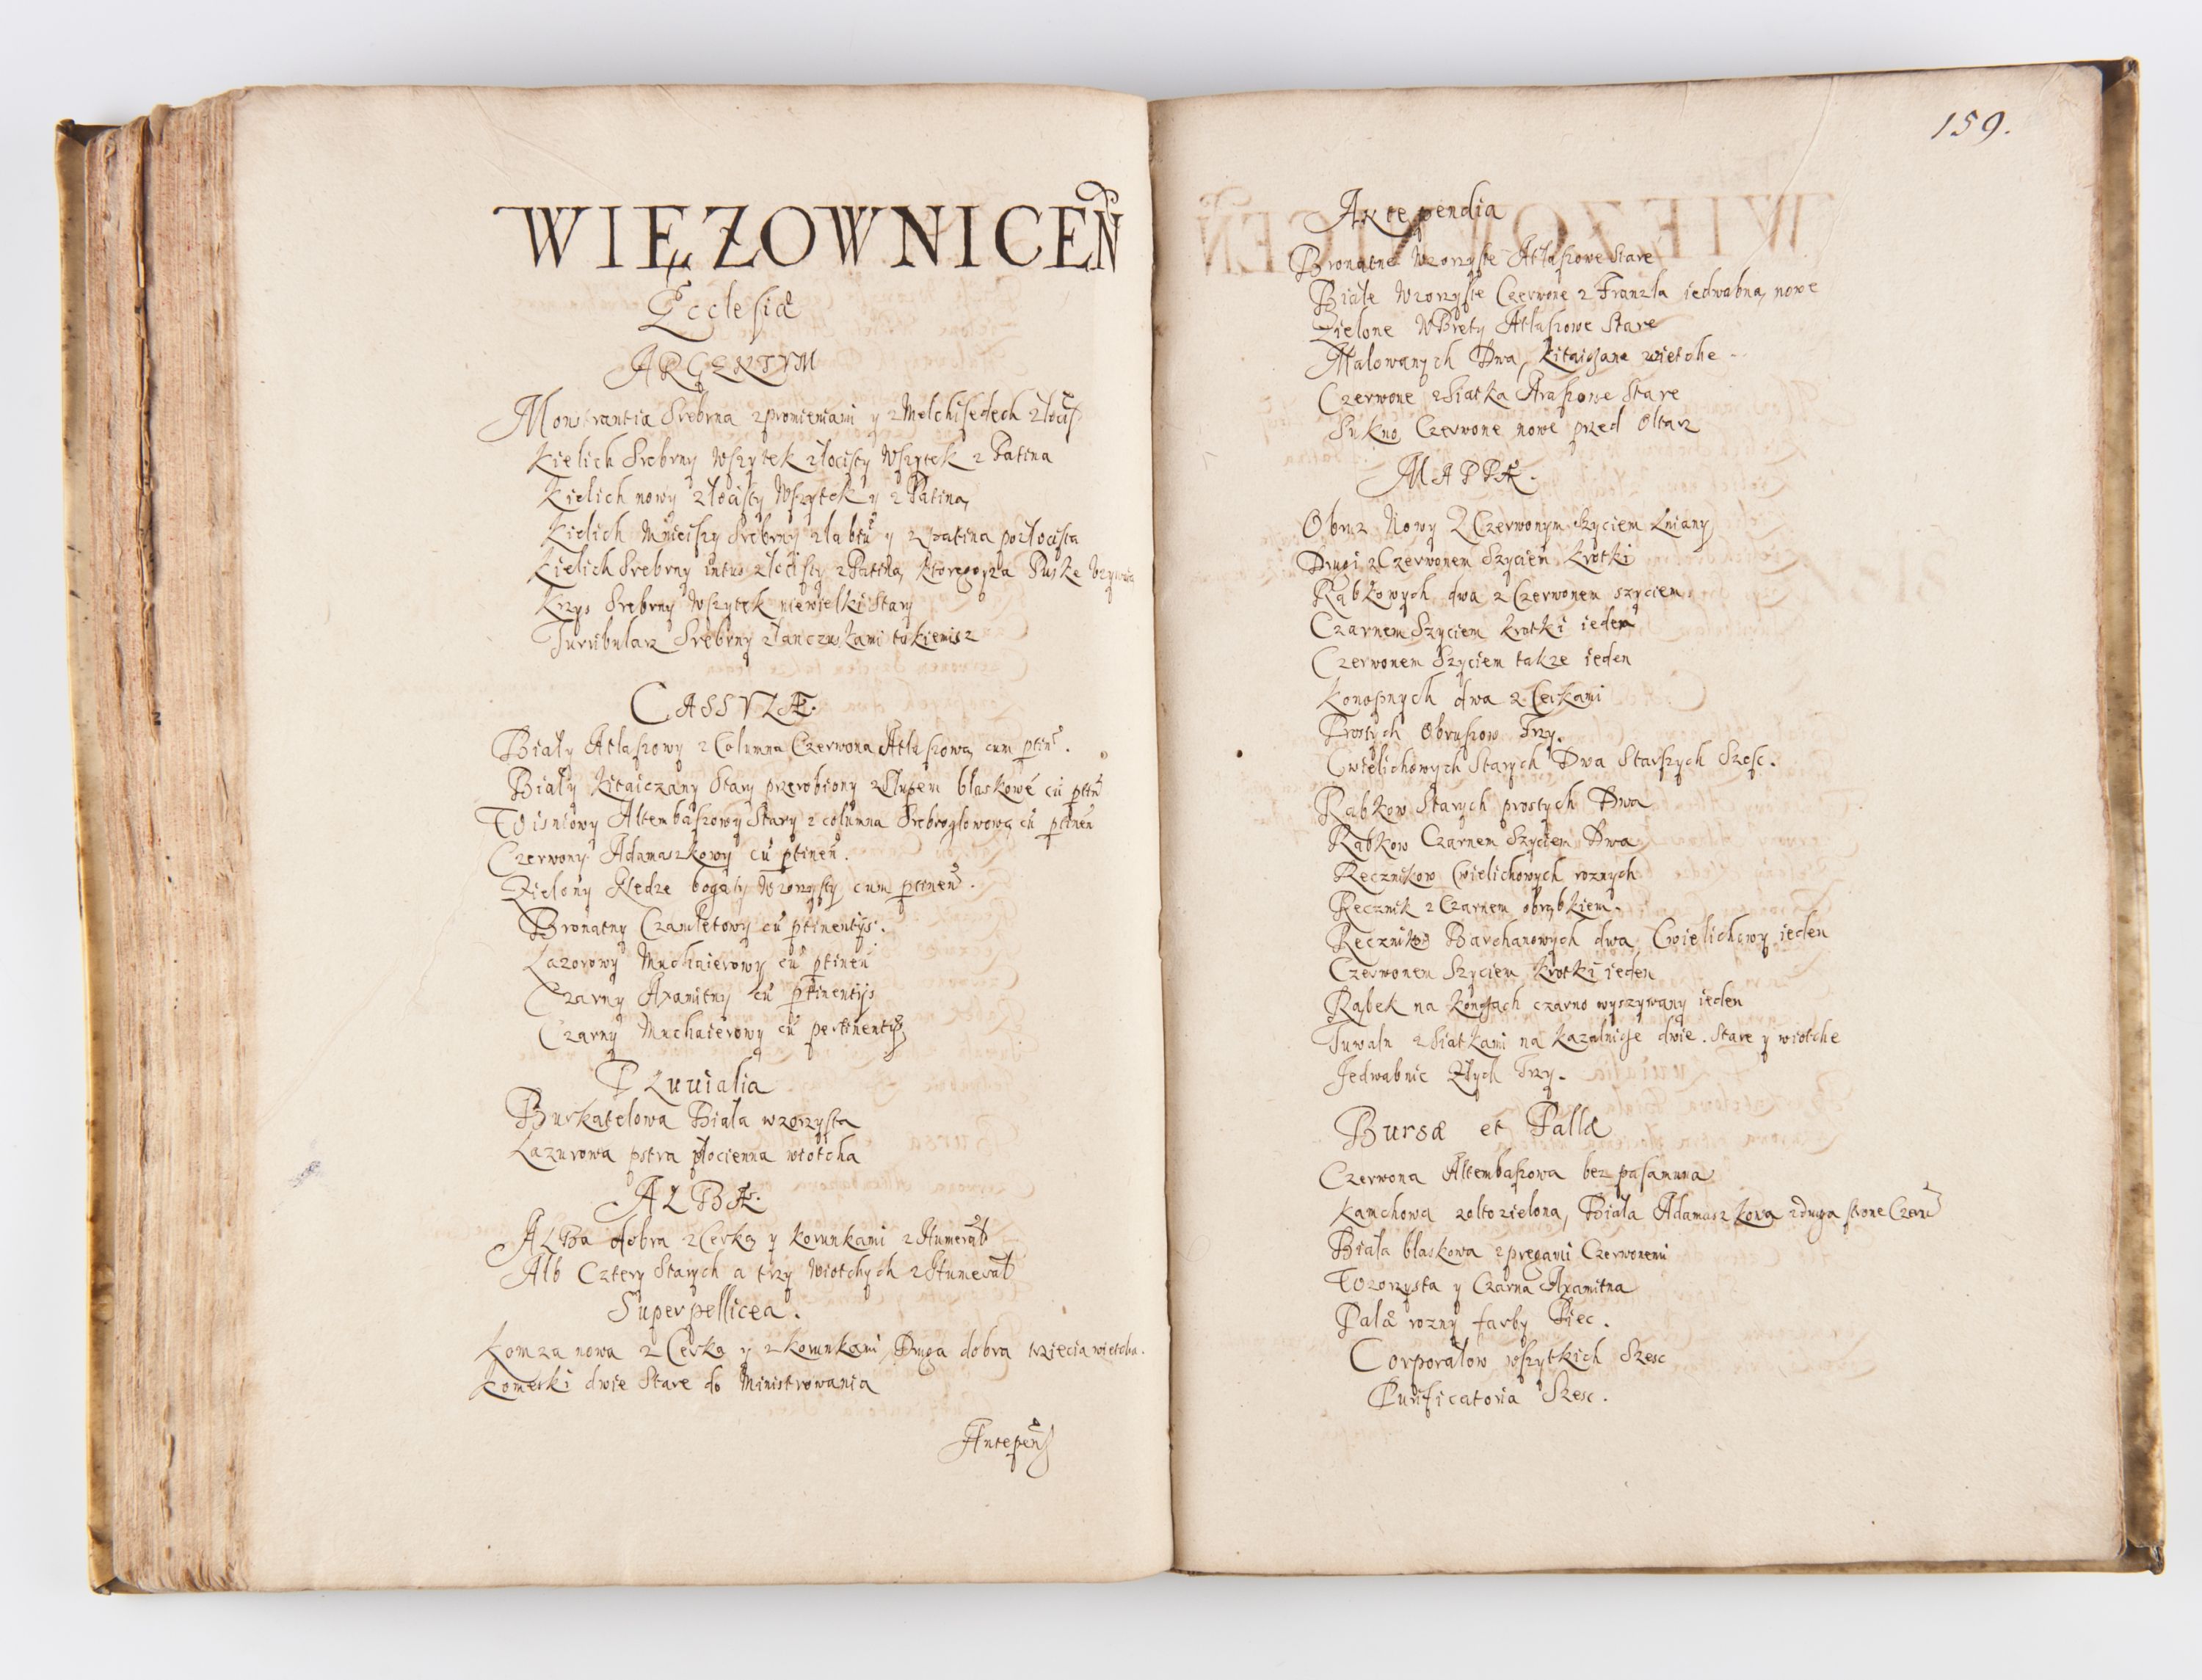 WIĘZOWNICEN̄
Ecclesiæ
ARGENTVM
Monstrantia Srebrna z promieniami y z Melchisedech złocis
Kielich Srebrny Wszytek złocisty Wszytek z Patina
Kielich nowy złocisty Wszytek y z Patiną
Kielich Mnieiszy Srebrny y z patina pozłocista
Kielich Srebrny intus złocisty z Patiną, ktorego za Puske
Krzys Srebrny Wszytek niewielki Stary
Turribularz Srebrny z łanczuszkami takiemisz
CASSVLÆ.
Biały Atłaszowy z Columna Czerwona Atłaszową cum ptin.
Biały Kitaiczany Stary przerobiony z Słupem błaskowe cū ptin
Wisniowy Altembaszowy Stary z columna Srebrogłowową cū ptinen
Czerwony Adamaszkowy cū ptinen.
Zielony bogaty Wzorzysty cum ptinen.
Bronatny Czamletowy cū ptinentijs.
Lazorowy Muchaierowy cū ptinen
Czarny Axamitny cū ptinentijs
Czarny Muchaierowy cū pertinentijs
Pluuialia
Burkatelowa Biała wzorzysta
Lazurowa pstra płocienna wiotcha
ALBÆ.
Alba dobra z Cerką y korunkami z Humerał
Alb Cztery Starych a trzy Wiotchych z Humerał
Superpellicea.
Komza nowa z Cerką y z korunkami Druga dobra trzecia wiotcha.
Komeski dwie Stare do Ministrowania
Antepen
159.
Antependia
Bronatne Wzorzyste Atłaszowe Stare
Białe Wzorzyste Czerwone z Franzla iedwabną nowe
Zielone WPrety Atłaszowe Stare
Malowanych Dwa, Kitaiczane wietche
Czerwone z Siatka Araszowe Stare
Sukno Czerwone nowe przed Ołtarz
MAPPÆ.
Obrus Nowy Z Czerwonym Szyciem Lniany
Drugi z Czerwonem Szyciem krotki
Rąbkowych dwa z Czerwonem szyciem
Czarnem Szyciem krotki ieden
Czerwonem Szyciem takze ieden
Konopnych dwa z Cerkami
Prostych Obruszow Trzy.
Cwielichowych Starych Dwa Starszych Szesc.
Rąbkow Starych prostych Dwa
Rąbkow Czarnem Szyciem Dwa
Recznikow Cwielichowych roznych
Recznik z Czarnem obrąbkiem.
Recznikow Barchanowych dwa, Cwielichowy ieden
Czerwonem Szyciem krotki ieden
Rąbek na koncach czarno wyszywany ieden
Tuwaln z Siatkami na kazalnice dwie. Stare y wiotche
Jedwabnic Złych Trzy.
Bursæ et Pallæ
Czerwona Altembaszowa bez pasamuna
Kamchowa zoltozielona, Biała Adamaszkowa z druga strone Czerw
Biała błaskowa z pregami Czerwonemi
Wzorzysta y Czarna Axamitna
Palæ rozny farby Piec.
Corporałow wszytkich Szesc
Purificatoria Szesc.